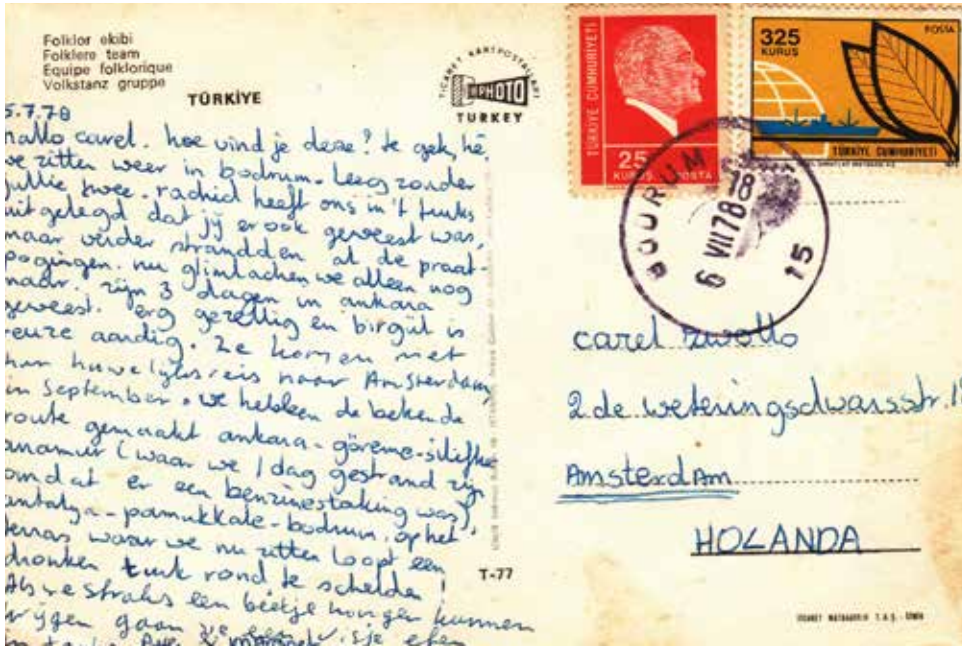 Folklor ekibi
Folklore team
Equipe folklorique
Volkstanz gruppe
TÜRKİYE
TİCARET KARTPOSTALLARI
PHOTO
TURKEY
5.7.78
hallo carel. hoe vind je deze? te gek, hè.
we zitten weer in bodrum. Leeg zonder
jullie twee. rachid heeft ons in 't turks
uitgelegd dat jij er ook geweest was,
maar verder strandden al de praat-
pogingen. nu glimlachen we alleen nog
maar. zijn 3 dagen in ankara
geweest. erg gezellig en birgül is
reuze aardig. Ze komen met
hun huwelijksreis naar Amsterdam
in September. we hebben de bekende
route gemaakt ankara-göreme-silifke
anamur (waar we 1 dag gestrand zijn
omdat er een benzinestaking was)
antalya-pamukkale-bodrum. op het
terras waar we nu zitten loopt een
dronken turk rond te schelden!
Als we straks een beetje honger kunnen
krijgen gaan we een visje eten
T-77
TÜRKİYE CUMHURİYETİ
25
KURUŞ POSTA
325
KURUŞ
POSTA
TÜRKİYE CUMHURİYETİ
BODRUM
18
6 VII 78
15
carel zwollo
2.de weteringsdwarsstr.
Amsterdam
HOLANDA
TİCARET MATBAACILIK T.A.Ş. - İZMİR